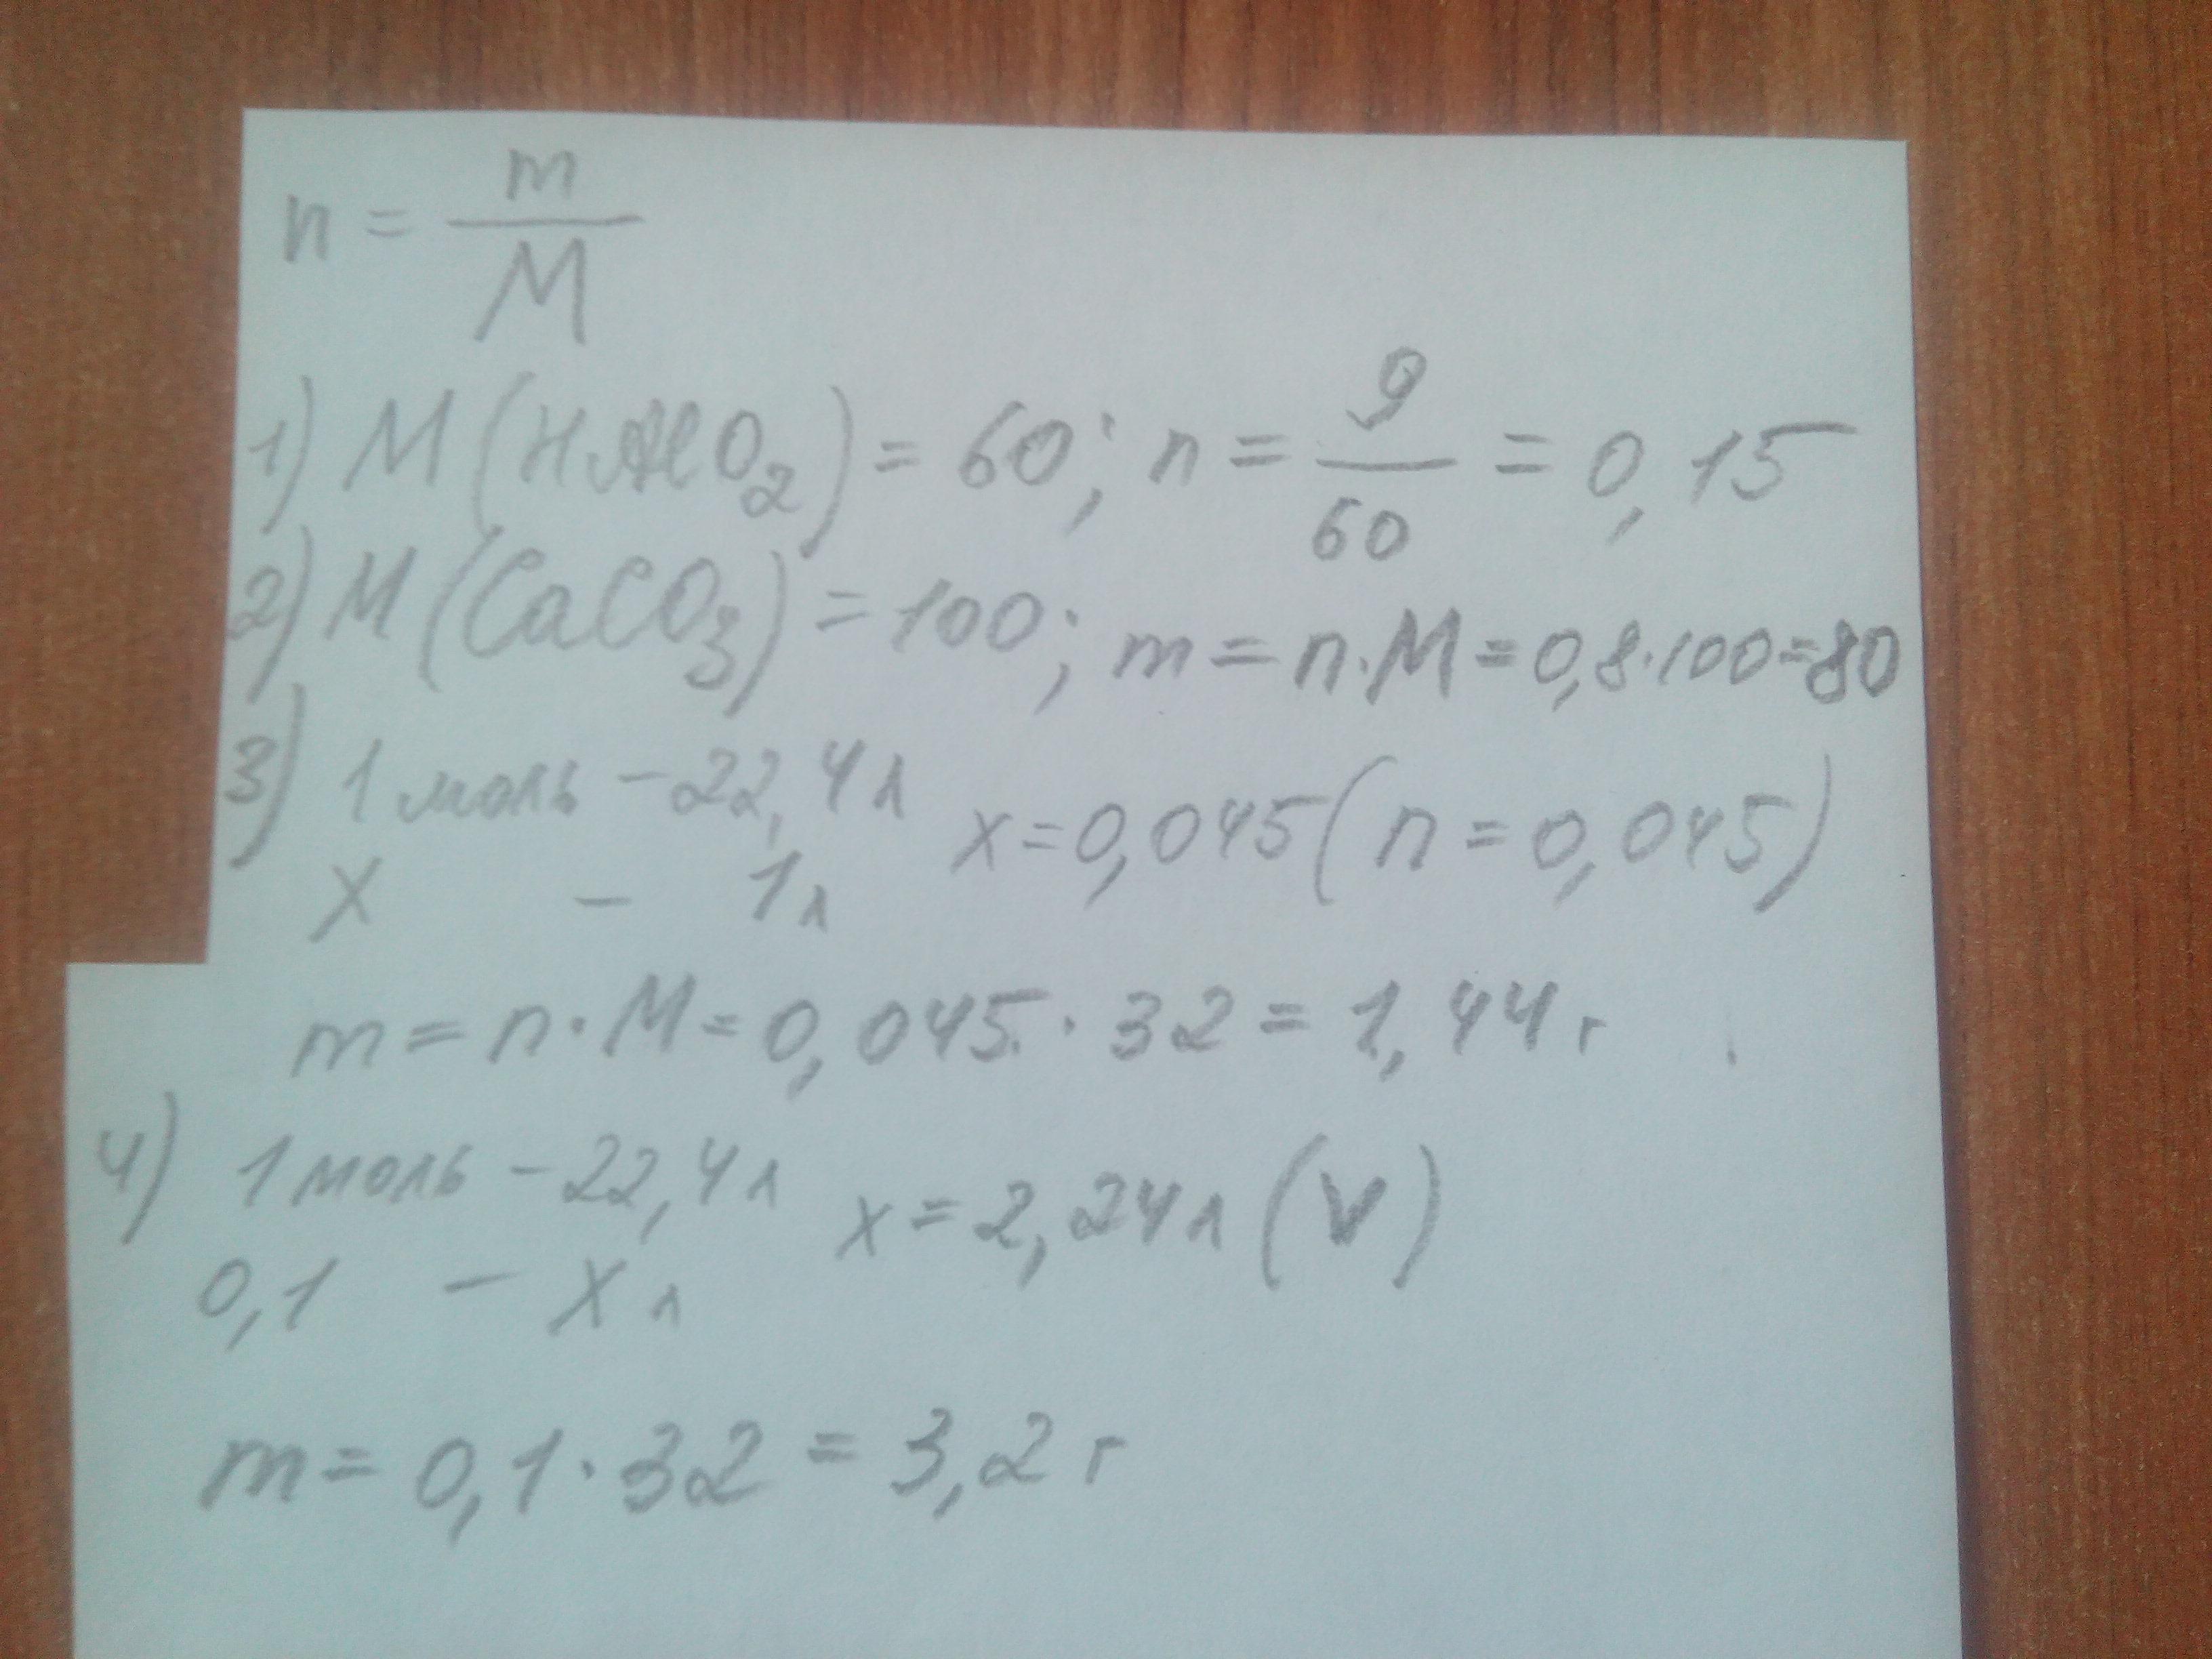 n = m/M
1) M(HAlO₂) = 60; n = 9/60 = 0,15
2) M(CaCO₃) = 100; m = n·M = 0,8·100=80
3) 1 моль - 22,4 л x = 0,045 (n = 0,045)
x - 1 л
m = n·M = 0,045·32 = 1,44 г
4) 1 моль - 22,4 л x = 2,24 л (V)
0,1 - x л
m = 0,1·32 = 3,2 г